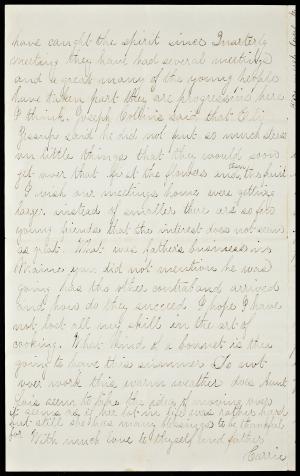 have caught the spirit since Quarterly
meeting they have had several meetings
and a great many of the young people
have taken part they are progressing here
I think. Joseph Collins said that Eliz
Jessup said he did not put so much stress
on little things that they would soon
get over that first the flowers and then fruit
I wish our meetings home were getting
larger instead of smaller there are so few
young friends that the interest does not seem
as great. What was father's business in
Maine you did not mention he was
going has the other contraband arrived
and how do they succeed I hope I have
not lost all my skill in the art of
cooking. What kind of a bonnet is thee
going to have this summer Do not
over work this warm weather does Aunt
Lois seem to like the idea of moving west
it seems as if her lot in life was rather hard
but still she has many blessings to be thankful
for With much love to thyself and father
Carrie